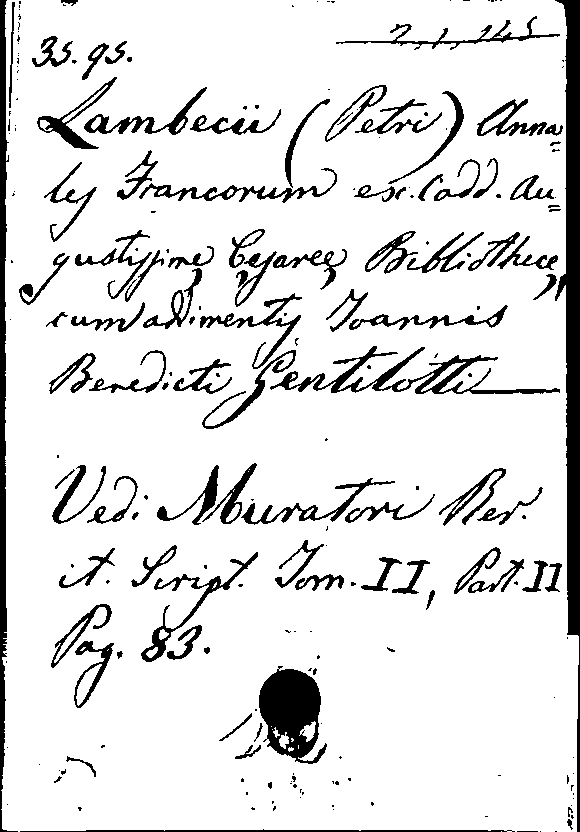 2,1,145
35.95.
Lambecii (Petri) Anna=
les Francorum ex Codd. Au=
gustissimę Cęsareę Bibliothecę,
cum adimentis Joannis
Benedicti Gentilotti
Vedi Muratori Rer.
it. Script. Tom. II, Part. II
Pag. 83.